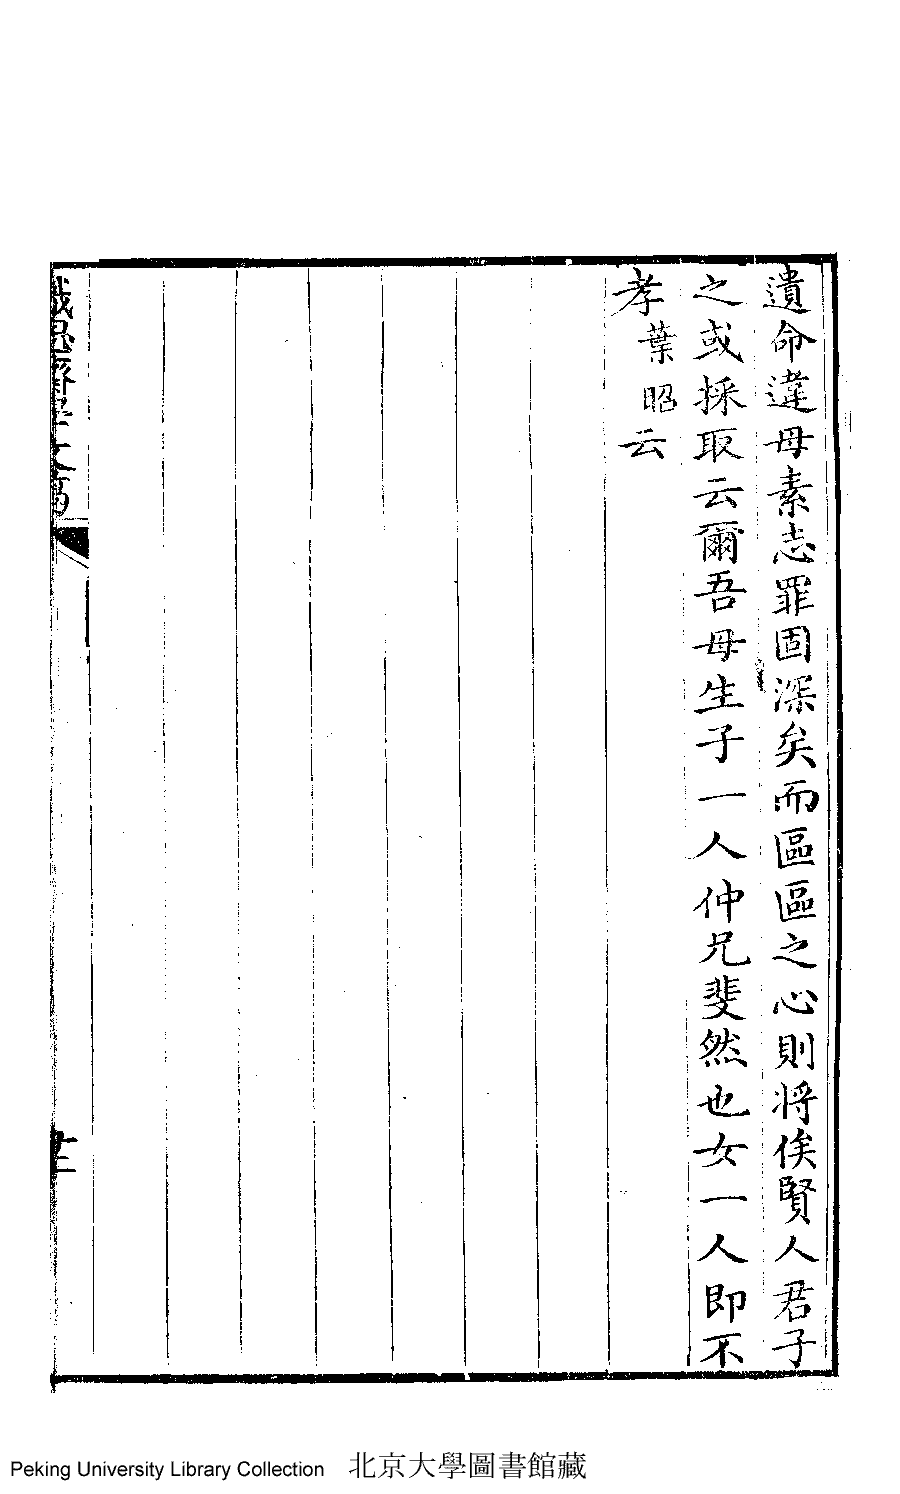 遺命違母素志罪固深矣而區區之心則將俟賢人君子
之或採取云爾吾母生子一人仲兄斐然也女一人即不
孝葉昭云
Peking University Library Collection 北京大學圖書館藏